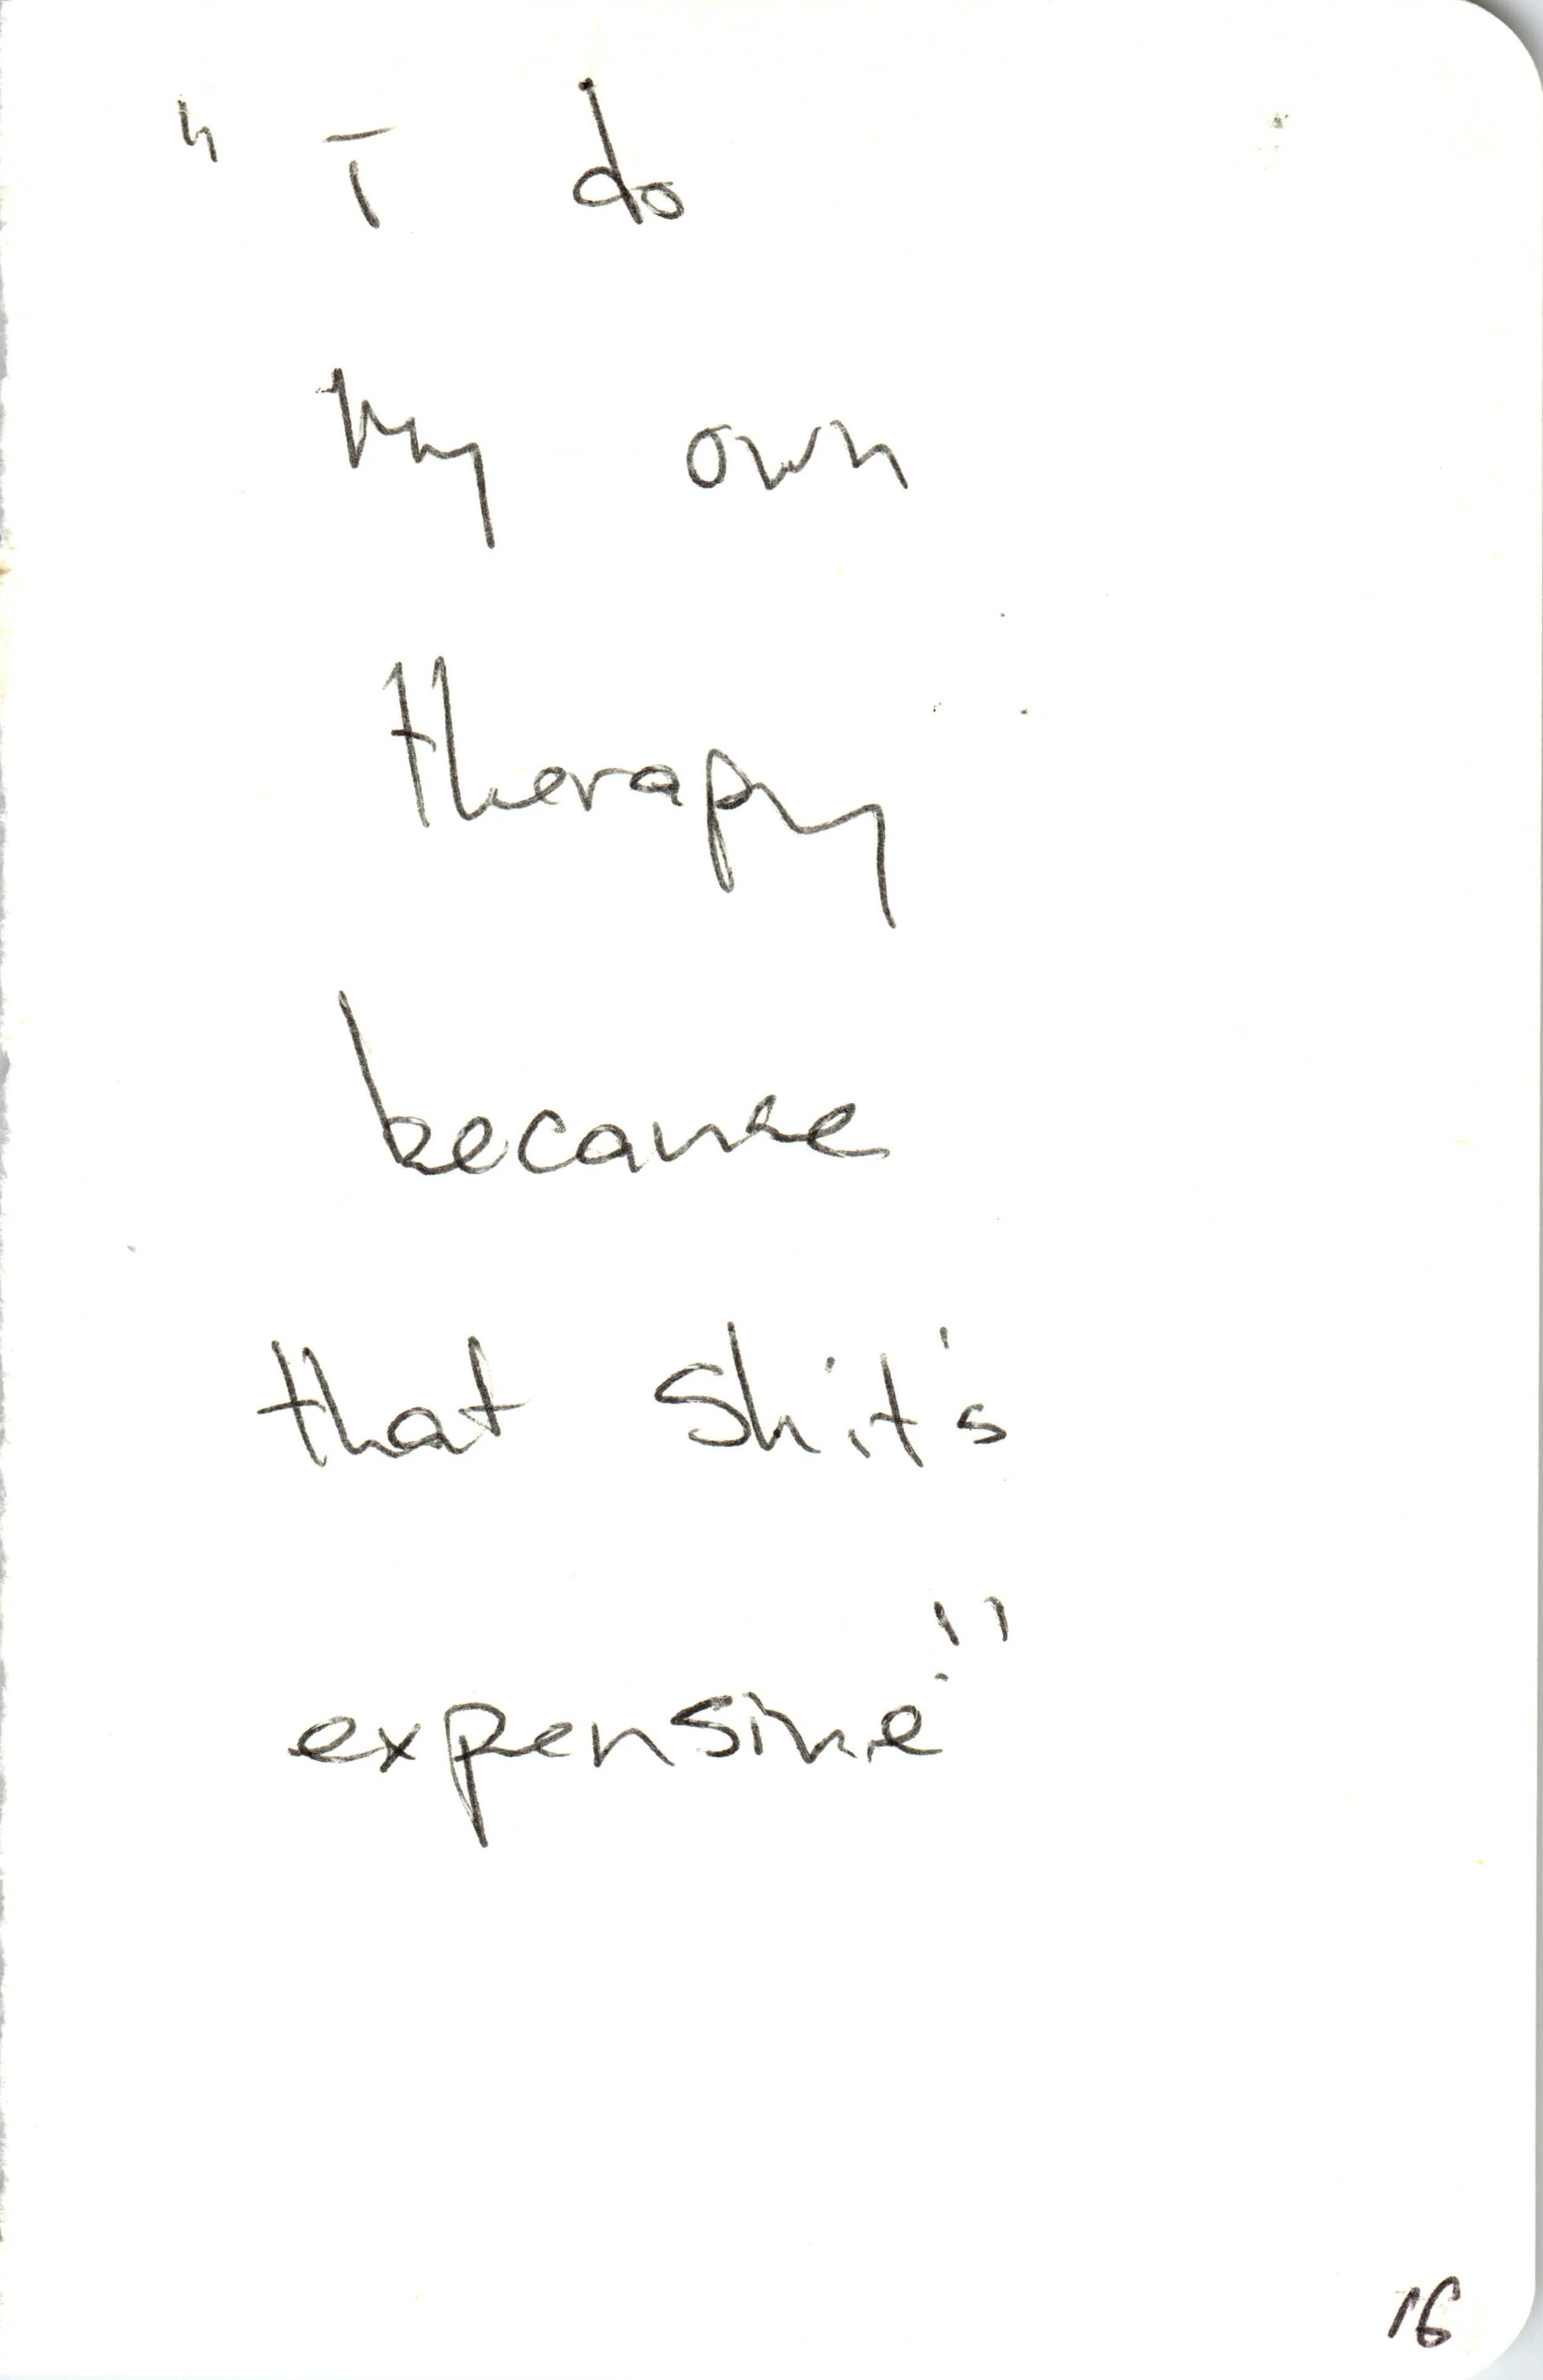 "I do
my own
therapy
because
that shit's
expensive"
16